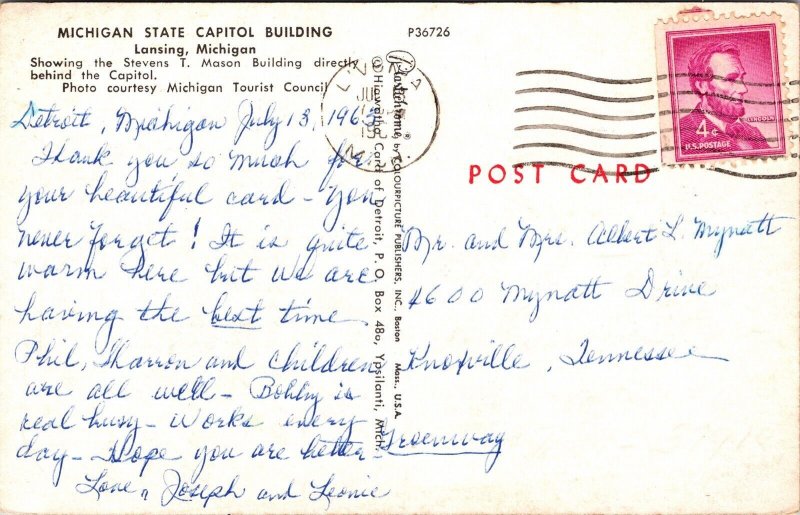 MICHIGAN STATE CAPITOL BUILDING
Lansing, Michigan
Showing the Stevens T. Mason Building directly
behind the Capitol.
Photo courtesy Michigan Tourist Council
P36726
Detroit, Michigan July 13, 196
Thank you so much for
your beautiful card - You
never forget! It is quite
warm here but we are
having the best time
Phil, Sharron and children
are all well - Bobby is
real busy - works every
day - Hope you are better
Love, Joseph and Leonie
Plastichrome by COLOURPICTURE PUBLISHERS, INC., Boston Mass., U.S.A.
© Hiawatha Card of Detroit, P. O. Box 480, Ypsilanti, Mich.
4¢
LINCOLN
U.S. POSTAGE
POST CARD
Mr. and Mrs. Albert L. Mynatt
4600 Mynatt Drive
Knoxville, Tennessee
Greenway